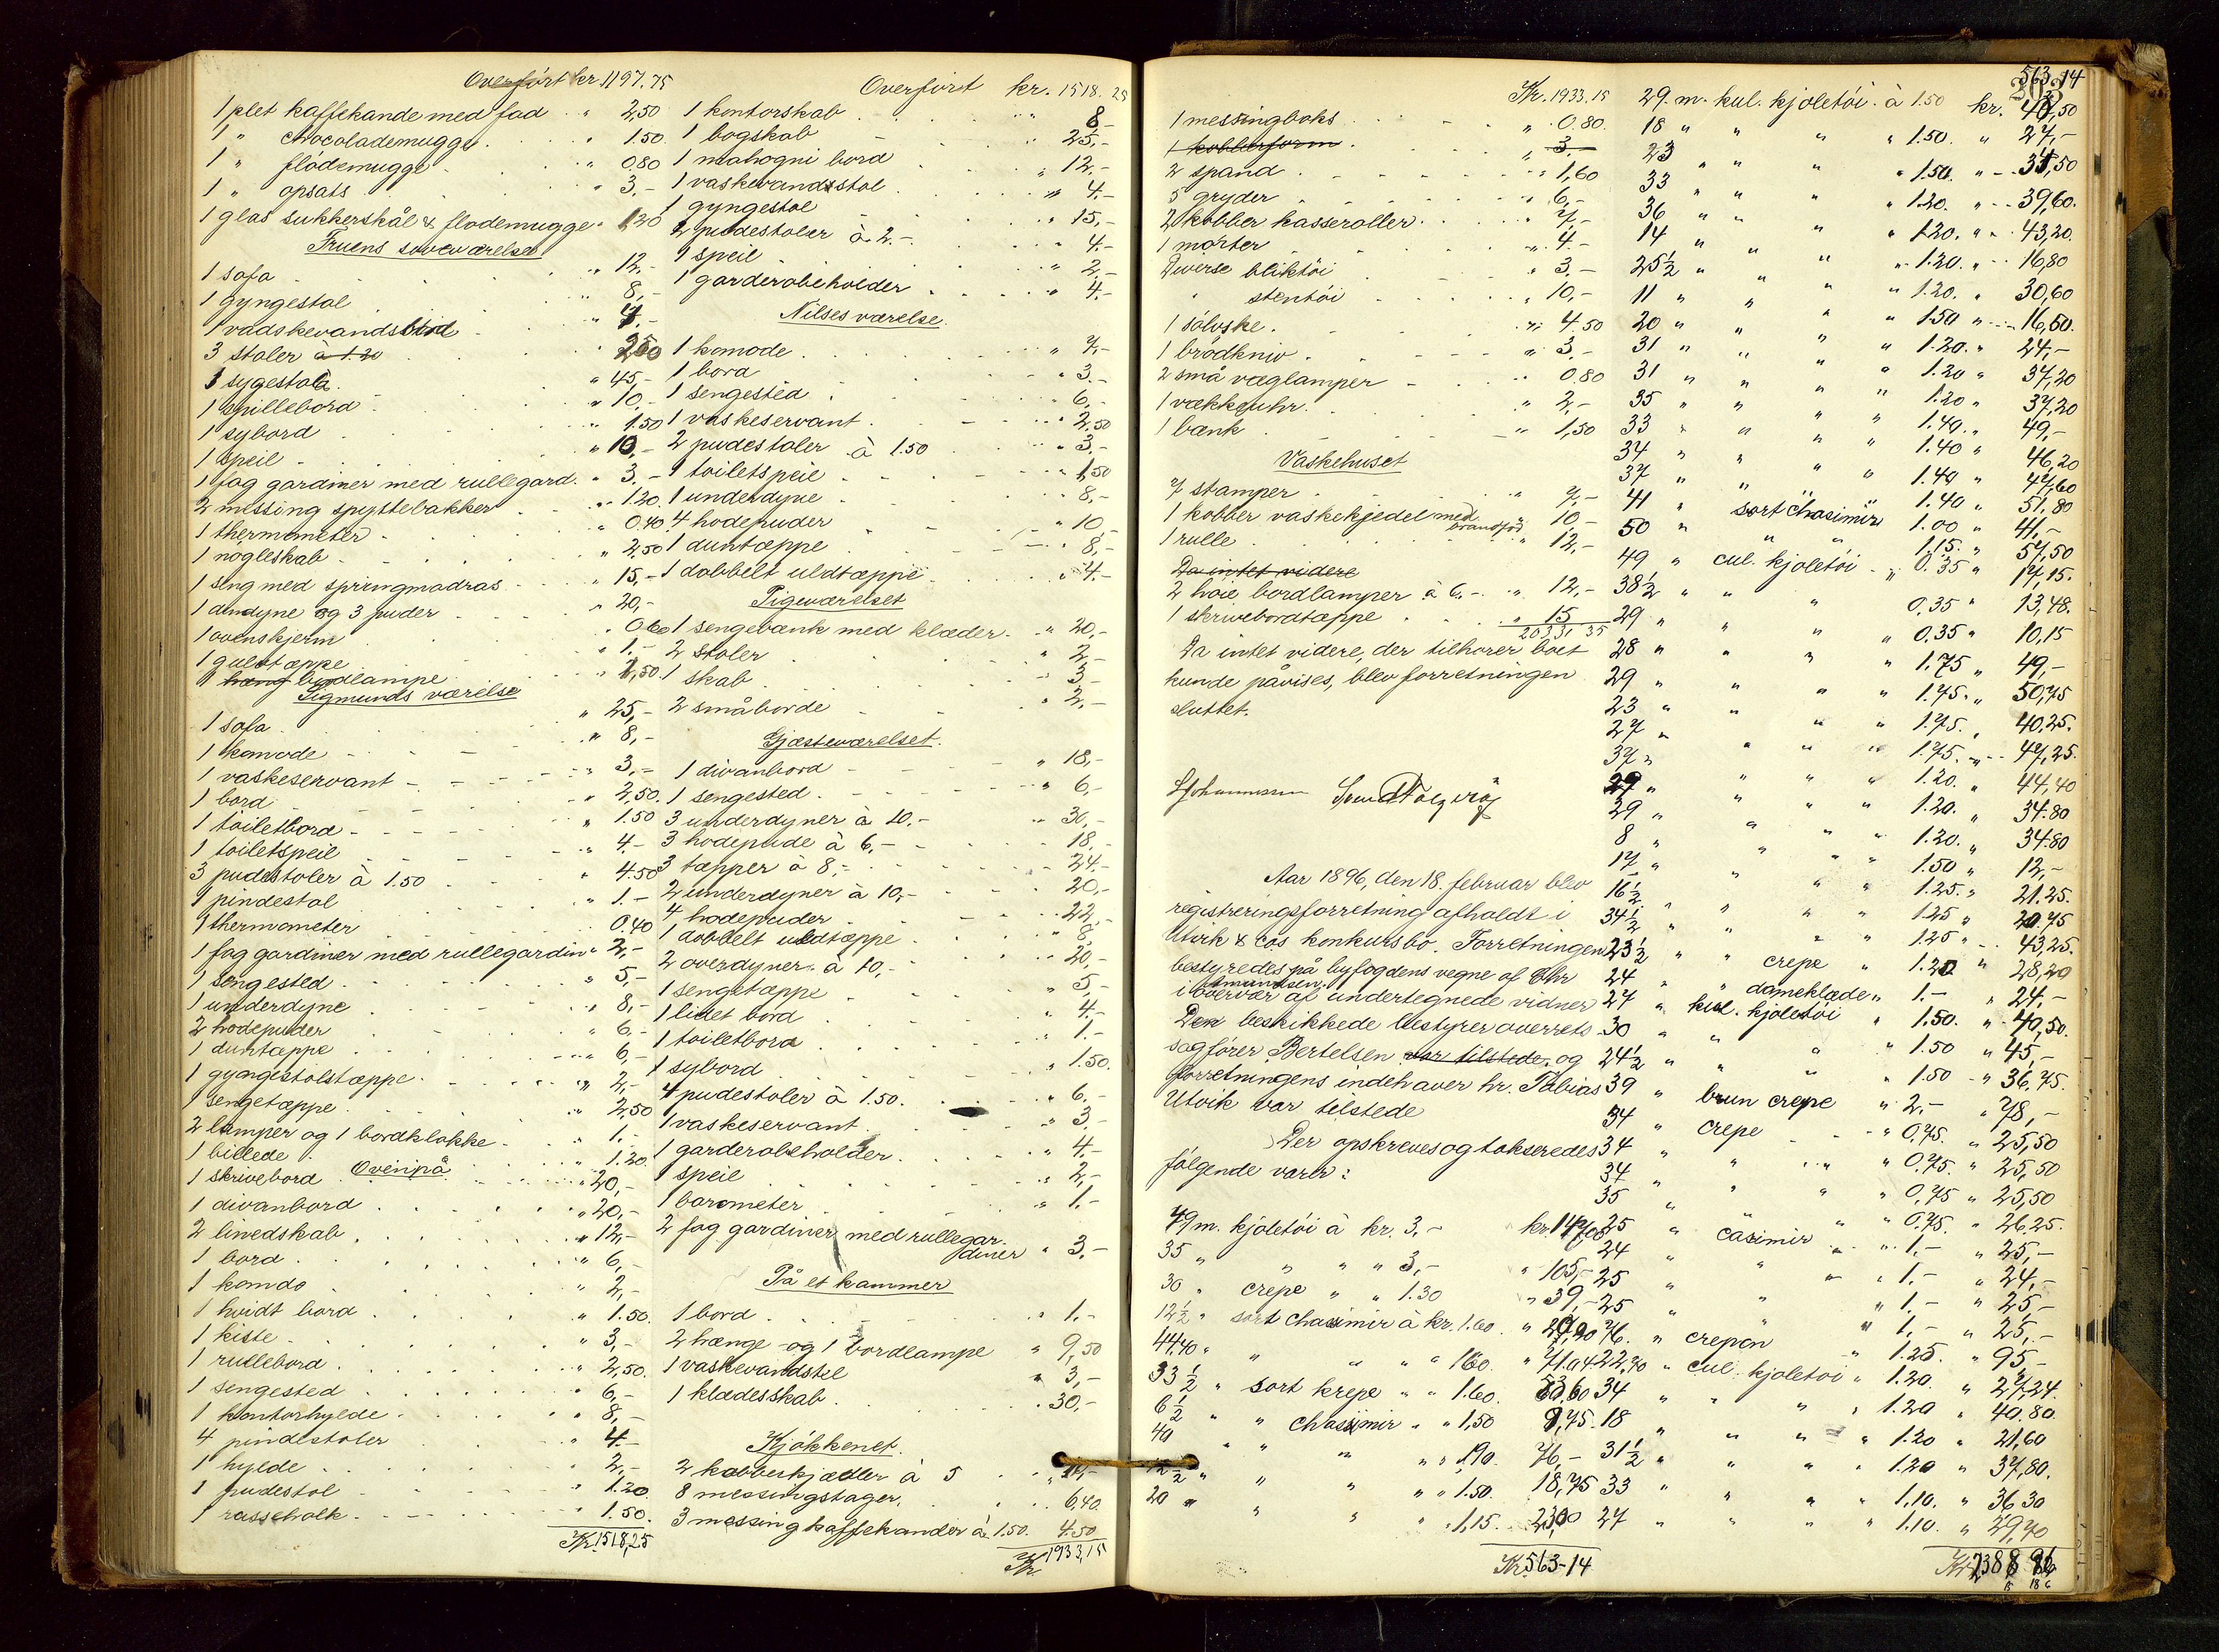 Overført kr. 1197.75
1 plet kaffekande med fad " 2,50
1 " chocolademugge " 1.50
1 " flödemugge " 0.80
1 " opsats " 3.-
1 glas sukkerskål & flodemugge "
Fruens soveværelse
1 sofa " 12,-
1 gyngestol " 8,-
1 vadskevandsstel "
3 stoler à 1.20
1 sygestol " 45,-
1 spillebord " 10,-
1 sybord " 1.50
1 speil " 10,-
1 fag gardiner med rullegard. " 3.-
2 messing spyttebakker " 1.20
1 thermometer " 0.40
1 nögleskab " 2,50
1 seng med springmadras " 15,-
1 dundyne og 3 puder " 20,-
1 ovenskjerm " 0.60
1 gulvtæppe " 1.-
1 hæng bordlampe " 1,50
Sigmunds værelse
1 sofa " 25,-
1 komode " 8,-
1 vaskeservant " 3,-
1 bord " 2,50
1 toiletbord " 1.50
1 toiletspeil " 4.-
3 pudestoler à 1.50 " 4.50
1 pindestol " 1.-
1 thermometer 0.40
1 fag gardiner med rullegardin " 2,-
1 sengested " 5,-
1 underdyne " 8,-
2 hodepuder " 6,-
1 duntæppe " 6,-
1 gyngestolstæppe " 2,-
1 sengetæppe " 2,50
2 lamper og 1 bordklokke " 1.-
1 billede " 1.20
Ovenpå
1 skrivebord " 20,-
1 divanbord " 20,-
2 linedskab " 12,-
1 bord " 6,-
1 komdo " 2,-
1 hvidt bord " 1.50
1 kiste " 3,-
1 rullebord " 2,50
1 sengested " 6,-
1 kontorhylde " 8,-
4 pindestoler " 4.-
1 hylde " 2,-
1 pudestol " 1.20
1 rasseholk 1.50.
Kr. 1518,25
Overført kr. 1518.25
1 kontorskab " 8.-
1 bogskab " 25,-
1 mahogni bord " 12,-
1 vaskevandsstol " 4.-
1 gyngestol " 15,-
2 pudestoler à 2.- " 4.-
1 speil " 2,-
1 garderobeholder " 4.-
Nilses værelse.
1 komode " 7,-
1 bord " 3.-
1 sengested " 6,-
1 vaskeservant " 2,50
2 pudestoler à 1.50 " 3.-
1 toiletspeil " 1,50
1 underdyne " 8,-
4 hodepuder " 10,-
1 duntæppe " 8,-
1 dobbelt uldtæppe " 4.-
Pigeværelset
1 sengebænk med klæder " 20,-
2 stoler " 2,-
1 skab " 3.-
2 småborde " 2,-
Gjæsteværelset.
1 divanbord " 18,-
1 sengested " 6,-
3 underdyner à 10.- " 30,-
3 hodepude à 6,- 18.-
3 tæpper à 8,- 24.-
2 underdyner à 10,- 20,-
4 hodepuder 22,-
1 dobbelt uldtæppe " 8,-
2 overdyner à 10,- " 20,-
1 sengetæppe " 5,-
1 lidet bord " 4.-
1 toiletbord " 1.-
1 sybord " 1.50.
4 pudestoler à 1.50. " 6.-
1 vaskeservant " 3.-
1 garderobeholder " 4.-
1 speil " 2,-
1 barometer " 1.-
2 fag gardiner med rullegardiner " 3.-
På et kammer
1 bord " 1.-
2 hænge og 1 bordlampe " 9,50
1 vaskevandstel " 3,-
1 klædesskab 30,-
Kjökkenet.
2 kobberkjædler à 5 "
8 messingstager " 6,40.
3 messing kaffekander à 1.50. 4.50
Kr. 1933,15
Kr. 1933,15
1 messingboks " 0.80
1 kobberform " 3.-
2 spand " 1,60
5 gryder " 6,-
2 kobber kasseroller " 7,-
1 morter " 4.-
Diverse bliktöi " 3.-
" stentöi " 10,-
1 sölvske " 4.50
1 brödkniv " 3.-
2 små væglamper " 0.80
1 vækkeuhr " 2,-
1 bænk " 1,50
Vaskehuset
7 stamper " 7,-
1 kobber vaskekjedel med " 10,-
1 rulle " 12,-
Da intet videre
2 hoie bordlamper à 6.- " 12,-
1 skrivebordtæppe " 15
Da intet videre, der tilhorer boet
kunde påvises, blev forretningen
sluttet.
SJohannessen
Aar 1896, den 18. februar blev
registreringsforretning afholdt i
Utvik & cos konkursbo. Forretningen
bestyredes på byfogdens vegne af Chr
Amundsen
i overvær af undertegnede vidner
Den beskikkede bestyrer overrets-
sagförer Bertelsen var tilstede og
forretningens indehaver hr. Tobias
Utvik var tilstede
Der opskreves og takseredes
følgende varer:
49 m. kjoletöi à kr. 3,-
35 " " " " 3,- " 105,-
30 " crepe " " 1.30 " 39,-
12 1/2 " sort chasimir à kr. 1.60
44,40 " " " " 1.60. " 71.04
33 1/2 " sort krepe " " 1.60. 53,60
6 1/2 " " chasimir " " 1,50 9,75
40 " " " " " 1.90. 76,-
12 1/2 " " " " " 1.50. 18,75
20 " " " " " 1,15. 23,00
Kr. 563-14
563.14
29. m. kul. kjoletöi à 1.50 kr.
18 " " " " 1.50. " 27,-
23 " " " " 1.50. " 34,50
33 " " " " 1.20. " 39,60.
36 " " " " 1.20. " 43,20.
14 " " " " 1.20. " 16,80
25 1/2 " " " " 1.20. " 30,60
11 " " " " 1.50 " 16,50.
20 " " " " 1.20. " 24,-
31 " " " " 1.20 " 37,20
31 " " " " 1.20 " 37,20
35 " " " " 1.40. " 49,-
33 " " " " 1.40 " 46,20
34 " " " " 1.40 " 47,60
37 " " " " 1.40 " 51,80
41 " sort chasimir 1.00 " 41,-
50 " " " 1.15. " 57,50
49 " cul. kjoletöi " 0.35 " 17,15.
38 1/2 " " " 0,35 " 13,48.
29 " " " " 0,35 " 10,15
28 " " " " 1.75 " 49,-
29 " " " " 1.75. " 50,75
23 " " " " 1.75. " 40,25.
27 " " " " 1.75. " 47,25.
37 " " " " 1.20. " 44,40
29 " " " " 1.20. " 34.80
29 " " " " 1.20. " 34.80
8 " " " " 1.50 " 12,-
17 " " " " 1.25. " 21.25.
16 1/2 " " " " 1.25 "
34 1/2 " " " " 1.25 " 43,25.
23 1/2 " " crepe " 1.20 " 28,20
24 " " dameklæde " 1.- " 24,-
27 " kul. kjoletöi " 1.50. " 40,50.
30 " " " " 1.50 " 45,-
24 1/2 " " " " 1.50 " 36,75.
39 " brun crepe " 2.- " 78,-
34 " crepe " 0,75. " 25,50
34 " " " 0,75. " 25,50
34 " " " 0,75 " 25,50
35 " " " 0,75. " 26.25.
25 " casimir " 1.- " 25,-
24 " " " 1.- " 24,-
25 " " " 1.- " 25,-
25 " " " 1.- " 25,-
76. " crepon " 1.25. " 95,-
22,70 " cul. kjoletöi " 1.20. " 27,24.
34 " " " " 1.20 " 40.80.
18 " " " " 1.20 " 21,60
31 1/2 " " " " 1.20 " 37,80.
33 " " " " 1,10. " 36 30
27 " " " " 1.10. " 29,70